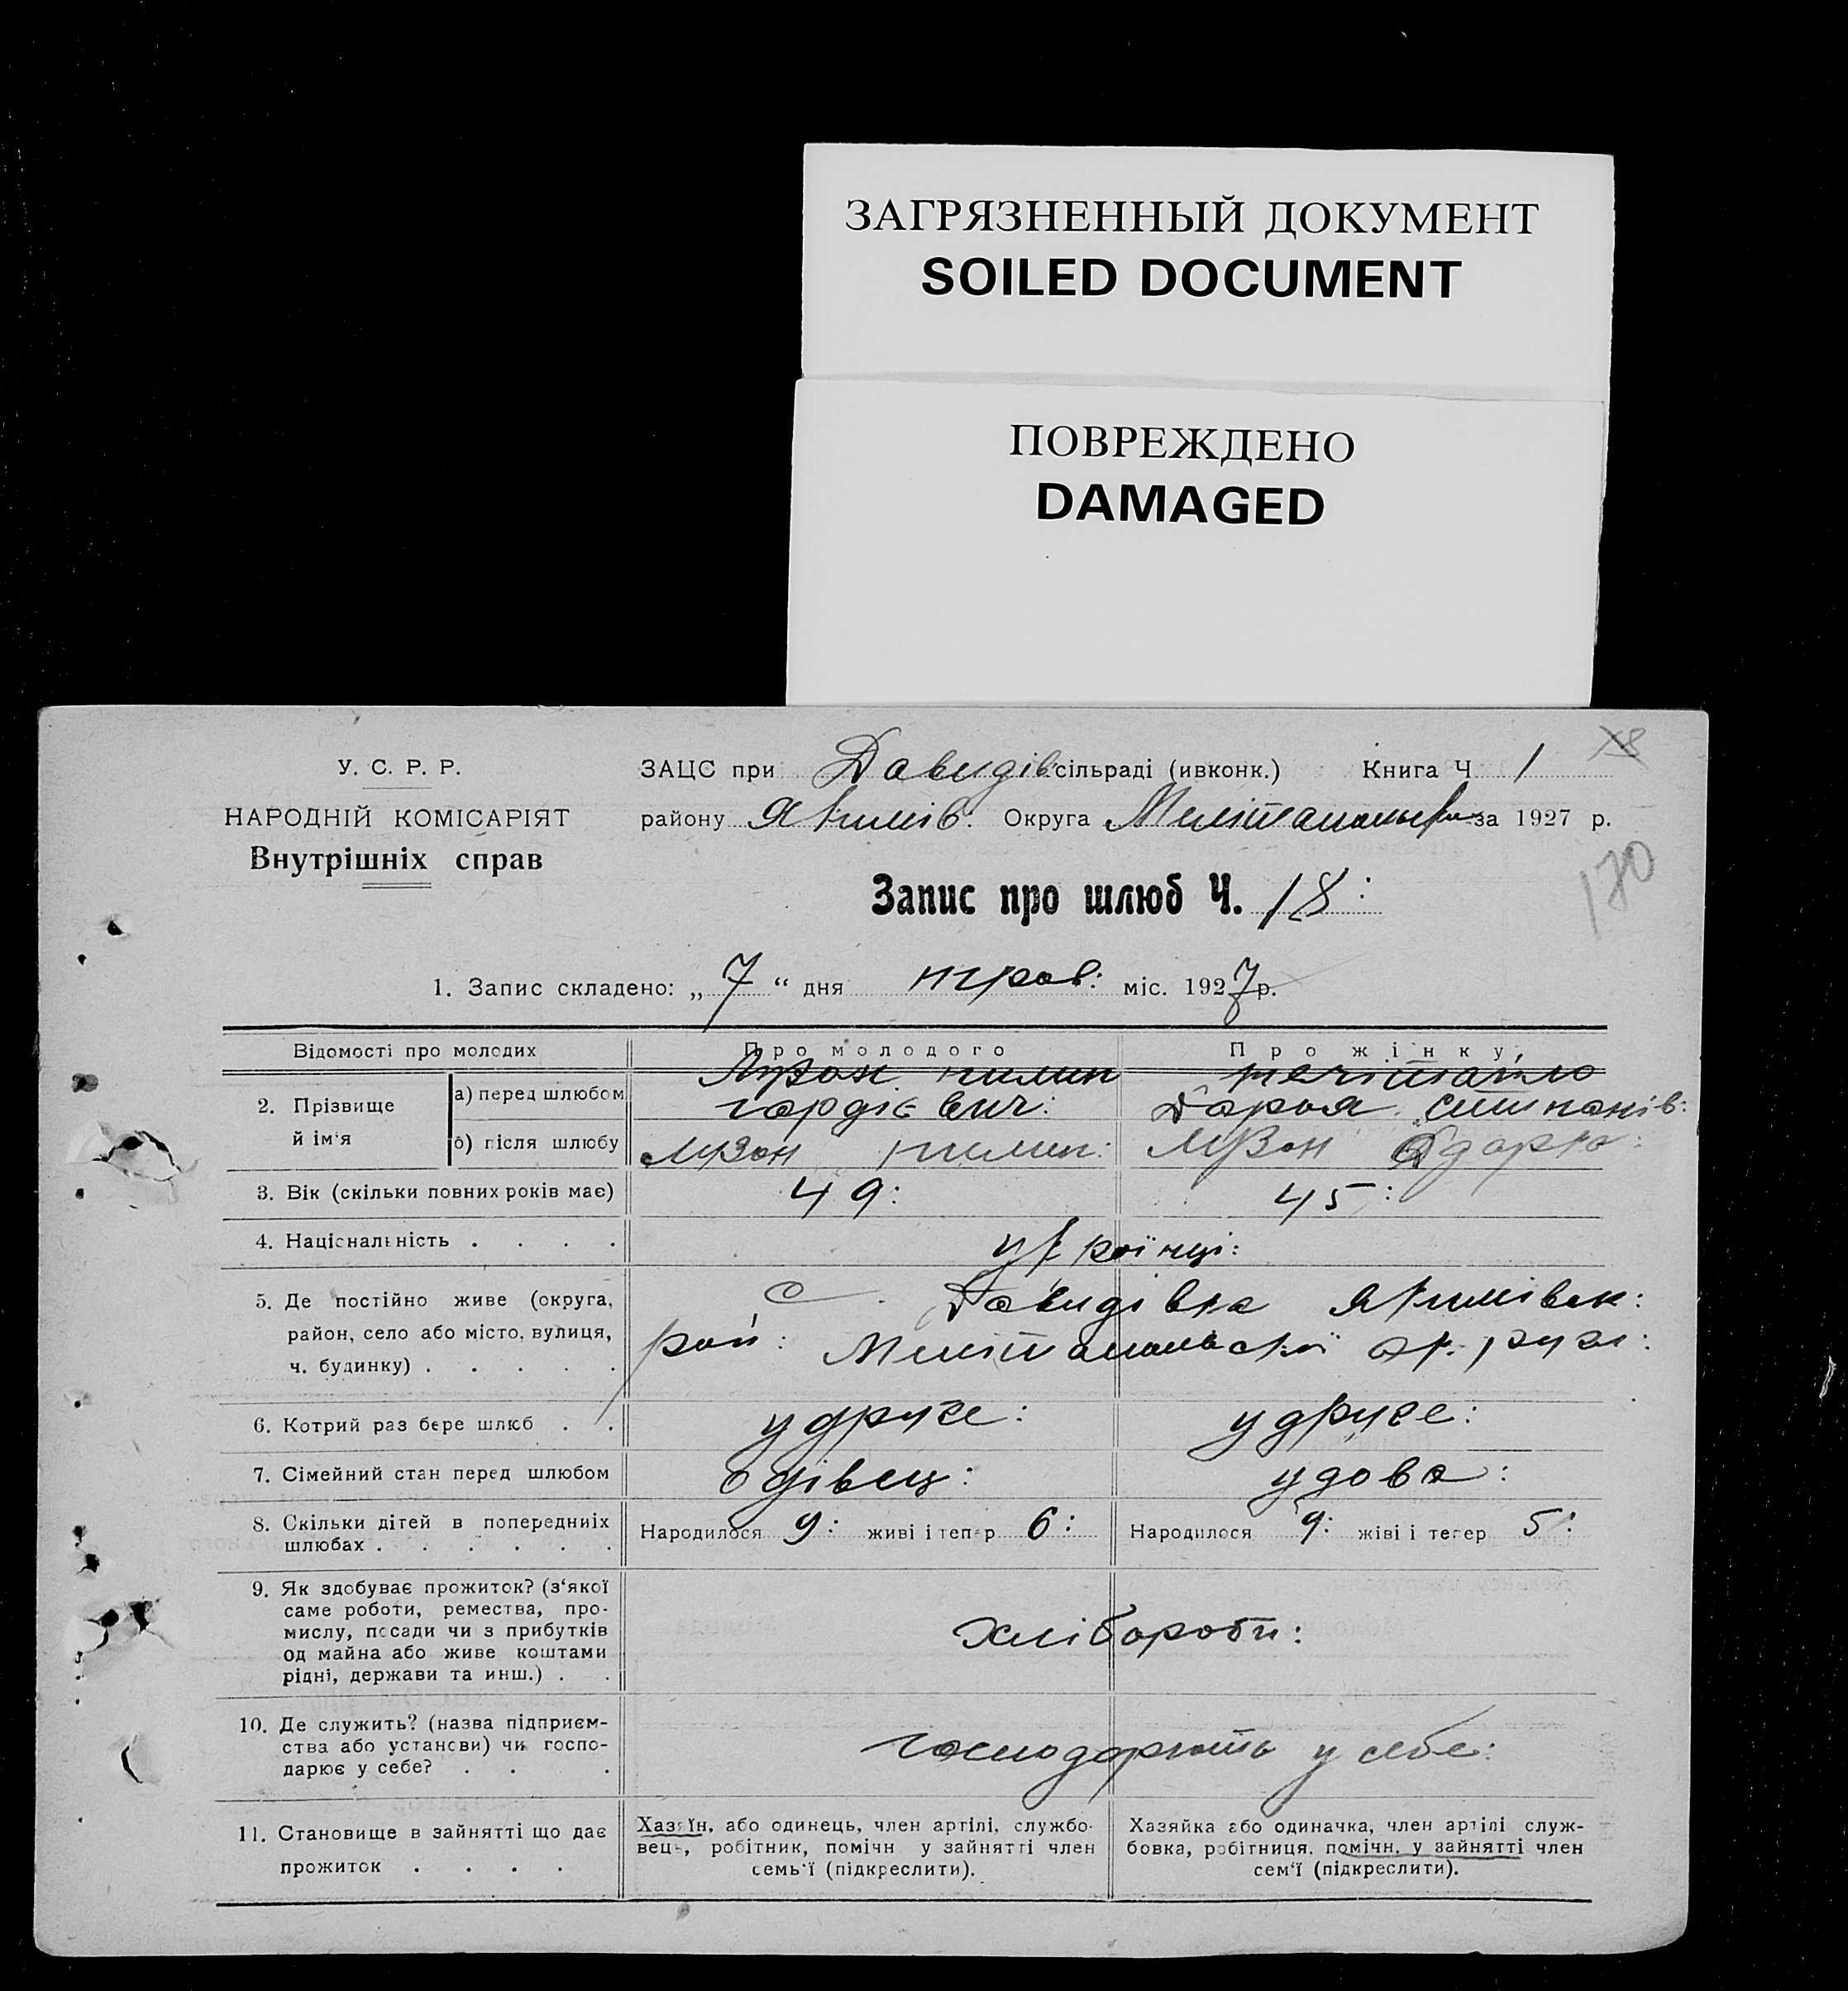 ЗАГРЯЗНЕННЫЙ ДОКУМЕНТ
SOILED DOCUMENT
ПОВРЕЖДЕНО
DAMAGED
У. С. Р. Р.
НАРОДНІЙ КОМІСАРІЯТ
Внутрішніх справ
ЗАЦС при Давидів. сільраді (ивконк.) Книга Ч 1
району Якимів. Округа за 1927 р.
170
Запис про шлюб Ч. 18:
1. Запис складено: „7“ дня трав: міс. 1927 р.
Відомості про молодих
Про молодого
Про жінку
2. Прізвище й ім'я
а) перед шлюбом
пилип
гордієвич:
Дарья
б) після шлюбу
пилип:
3. Вік (скільки повних років має)
49:
45:
4. Націснальність . . . .
украінці:
5. Де постійно живе (округа,
район, село або місто, вулиця,
ч. будинку) . . . . .
с. Давидівка Якимівск:
рай: Мелітопольскої округи:
6. Котрий раз бере шлюб . .
удруге:
удруге:
7. Сімейний стан перед шлюбом
одівец:
удова:
8. Скільки дітей в попередниіх
шлюбах . . . . . .
Народилося 9: живі і тепер 6:
Народилося 9: жіві і тепер 5:
9. Як здобуває прожиток? (з'якої
саме роботи, ремества, про-
мислу, посади чи з прибутків
од майна або живе коштами
рідні, держави та инш.) . .
хлібороби:
10. Де служить? (назва підприєм-
ства або установи) чи госпо-
дарює у себе? . . .
господарюють у себе:
11. Становище в зайнятті що дає
прожиток . . . .
Хазяїн, або одинець, член артілі, службо-
вець, робітник, помічн у зайнятті член
семь'ї (підкреслити).
Хазяйка або одиначка, член артілі служ-
бовка, робітниця, помічн. у зайнятті член
сем'ї (підкреслити).